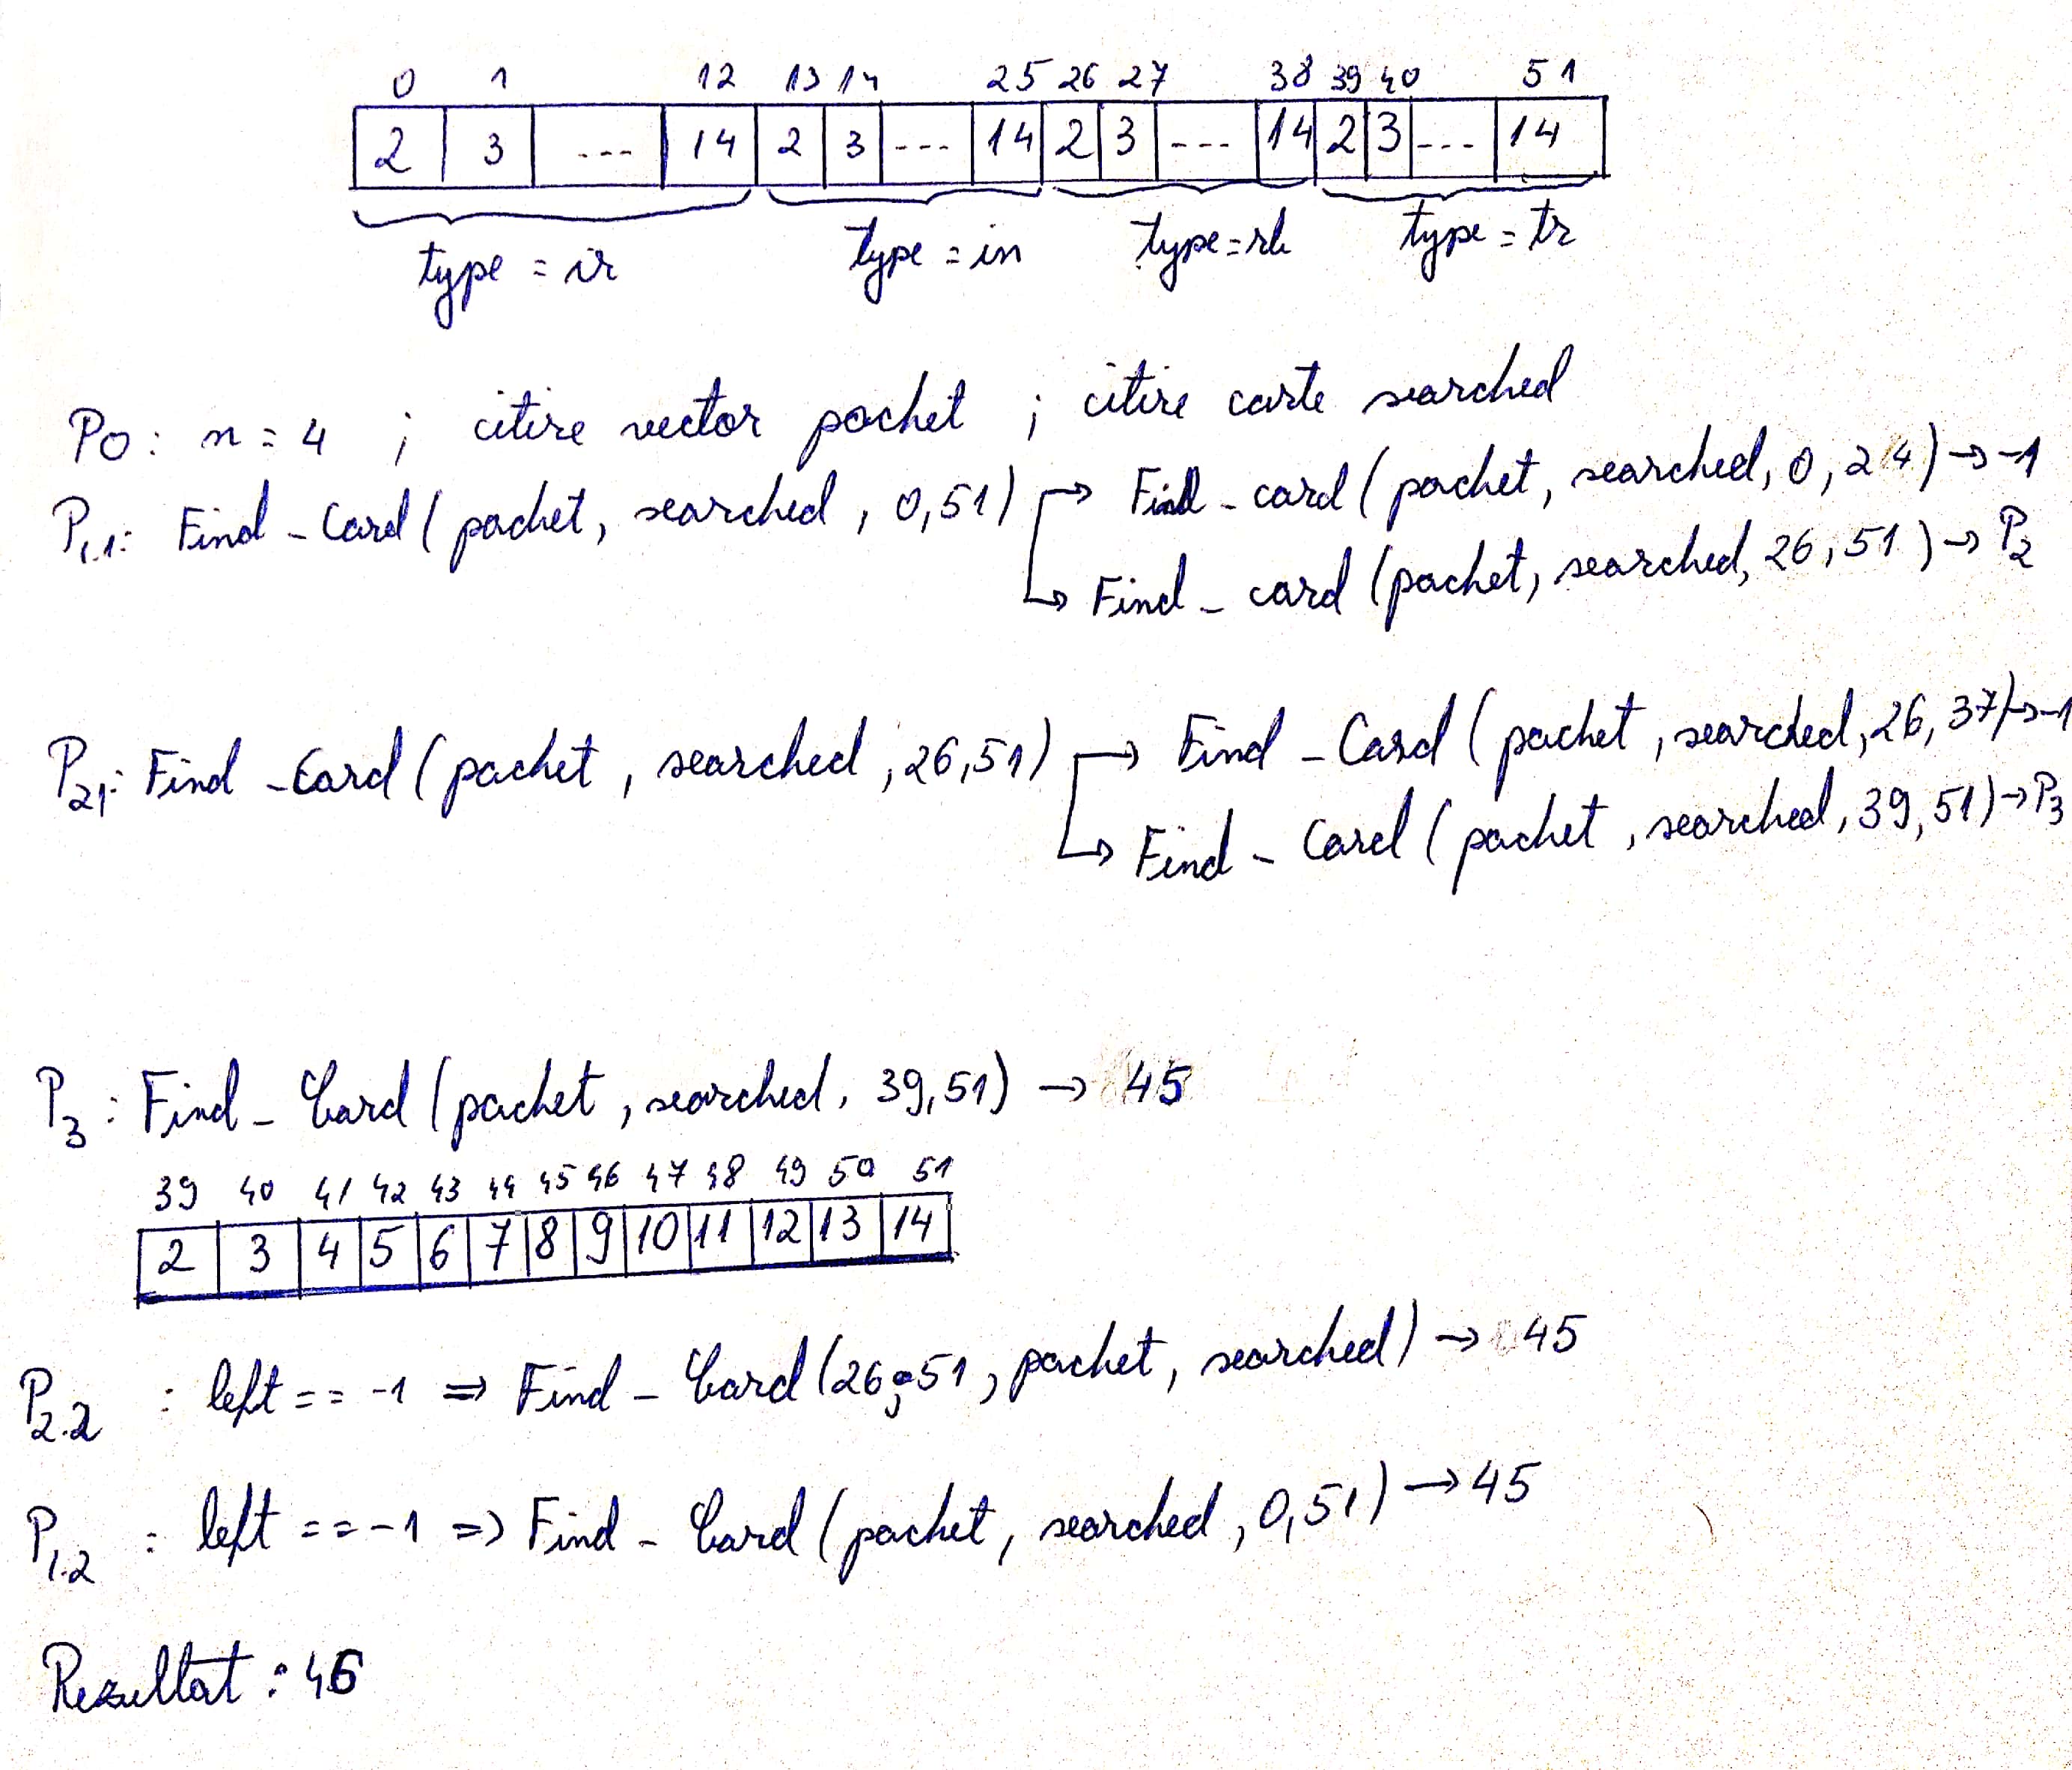 0 1 12 13 14 25 26 27 38 39 40 51
2 3 --- 14 2 3 --- 14 2 3 --- 14 2 3 --- 14
type = ir type = in type = rh type = tr
P0: n = 4 ; citire vector pachet ; citire carte searched
P1.1: Find - Card ( pachet, searched, 0,51) → Find - card ( pachet, searched, 0, 24) → -1
↳ Find - card (pachet, searched, 26,51) → P2
P21: Find - Card ( pachet, searched, 26,51) → Find - Card ( pachet, searched, 26, 37) → -1
↳ Find - Card ( pachet, searched, 39,51) → P3
P3 : Find - Card ( pachet, searched, 39,51) → 45
39 40 41 42 43 44 45 46 47 48 49 50 51
2 3 4 5 6 7 8 9 10 11 12 13 14
P2.2 : left == -1 => Find - Card (26,51, pachet, searched) → 45
P1.2 : left == -1 => Find - Card ( pachet, searched, 0,51) → 45
Rezultat : 46